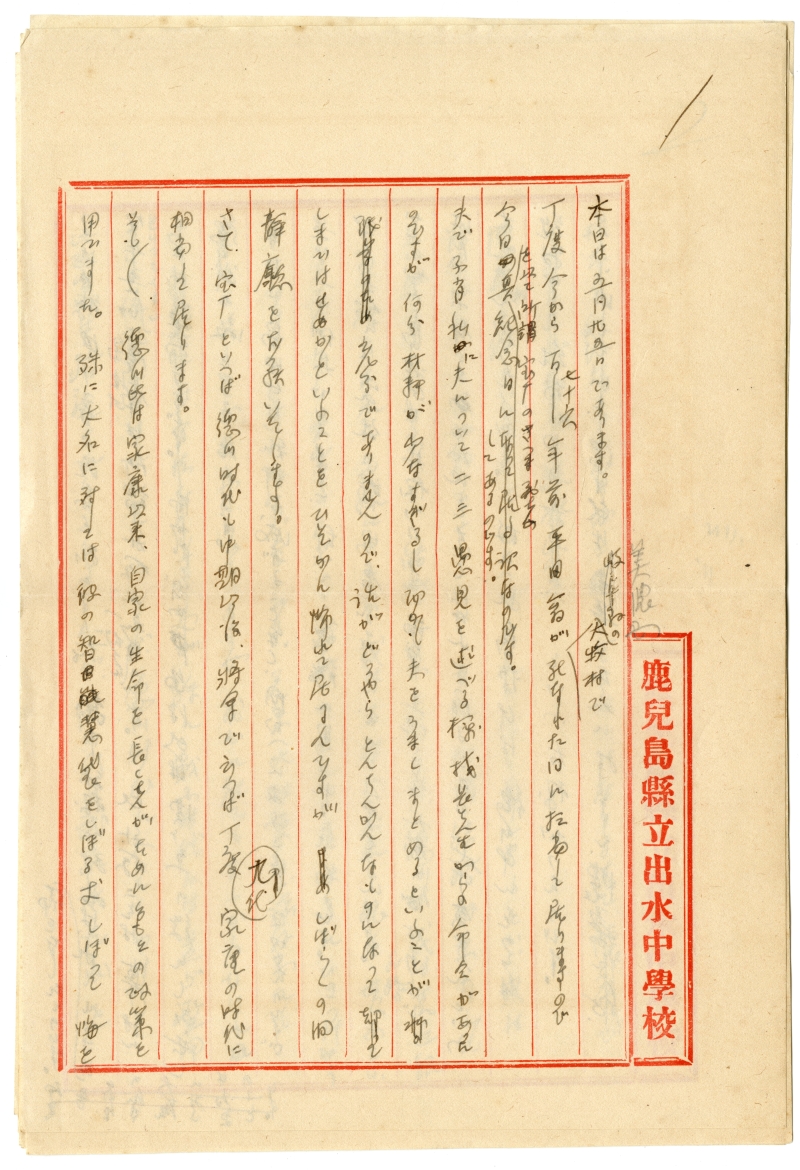 本日は五月廿五日であります。
丁度今から百七十六年前平田翁が死なれた日に相当して居りますので
岐阜縣の
大牧村で
美濃
今日の典記念日に
してあるのです。
夫で不肖私に夫について二三愚見を述べる様校長先生からの命令がある
のですが何分材料が少なすぎるし而も夫をうまくまとめるといふことが
充分でありませんので、話がどうやらとんちんかんなものになつて
しまひはせぬかといふことをひそかに怖れて居るんですがしばらくの間
静聴をお願いします。
さて、宝暦といへば徳川時代も中期以後、将軍で云へば丁度九代家重の時代に
相当して居ります。
そも〱徳川氏は家康以来、自家の生命を長くせんがために色々の政策を
用ひました。殊に大名に対しては彼の智慧袋をしぼる丈しぼつて
鹿兒島縣立出水中學校